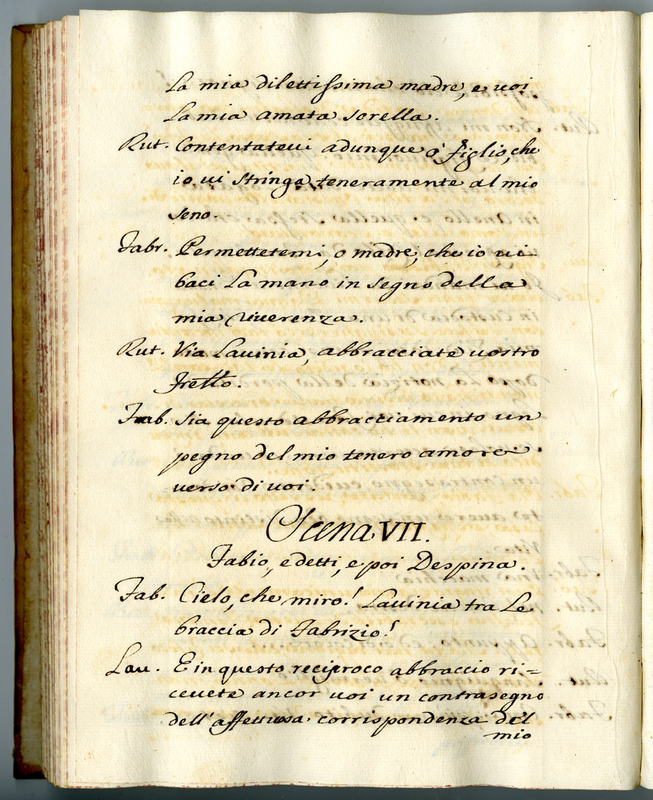 La mia dilettissima madre, e voi
La mia amata sorella.
Rut. Contentatevi adunque ò figlio, che
io vi stringa teneramente al mio
seno.
Fabr. Permettetemi, o madre, che io vi
baci La mano in segno della
mia riverenza.
Rut. Via Lavinia, abbracciate vostro
frello.
Fab. Sia questo abbracciamento un
pegno del mio tenero amore
verso di voi.
Scena VII.
Fabio, e detti, e poi Despina.
Fab. Cielo, che miro! Lavinia tra Le
braccia di Fabrizio!
Lav. E in questo reciproco abbraccio ri=
cevete ancor voi un contrasegno
dell'affettuosa corrispondenza del
mio